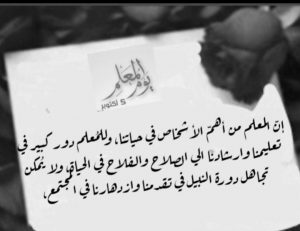 يوم المعلم
5 اكتوبر
إنّ المعلم من أهمّ الأشخاص في حياتنا، وللمعلم دور كبير في
تعليمنا وارشادنا الى الصلاح والفلاح في الحياة، ولا يُمكن
تجاهل دورة النبيل في تقدمنا وازدهارنا في المجتمع،